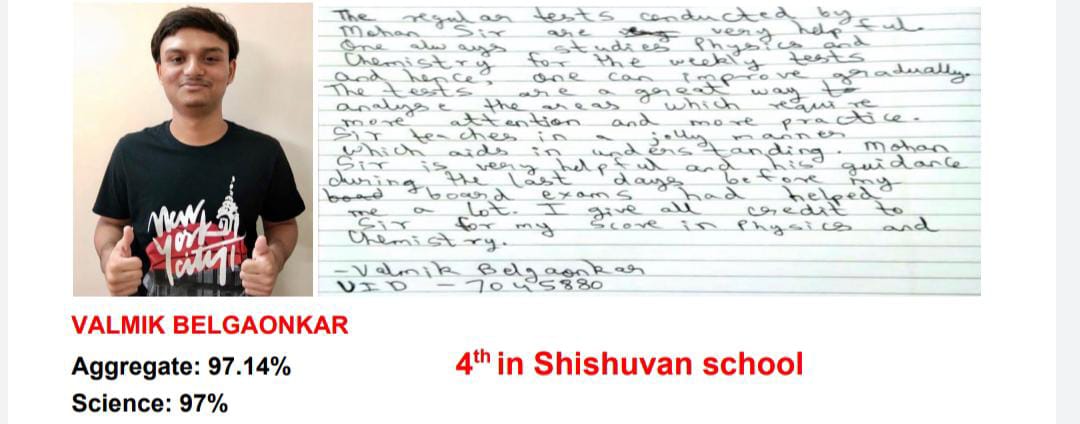 New
York
city
The regular tests conducted by
Mohan Sir are very helpful.
One always studies Physics and
Chemistry for the weekly tests
and hence, one can improve gradually.
The tests are a great way to
analyse the areas which require
more attention and more practice.
Sir teaches in a jolly manner
which aids in understanding. Mohan
Sir is very helpful and his guidance
during the last days before my
board board exams had helped
me a lot. I give all credit to
Sir for my score in Physics and
Chemistry.
- Valmik Belgaonkar
UID - 7045880
VALMIK BELGAONKAR
Aggregate: 97.14%
4th in Shishuvan school
Science: 97%